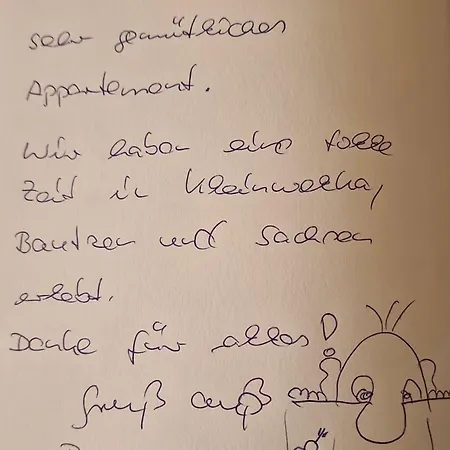 sehr gemütliches
Appartement.
Wir haben eine tolle
Zeit in Kleinwelka,
Bautzen und Sachsen
erlebt.
Danke für alles!
Gruß